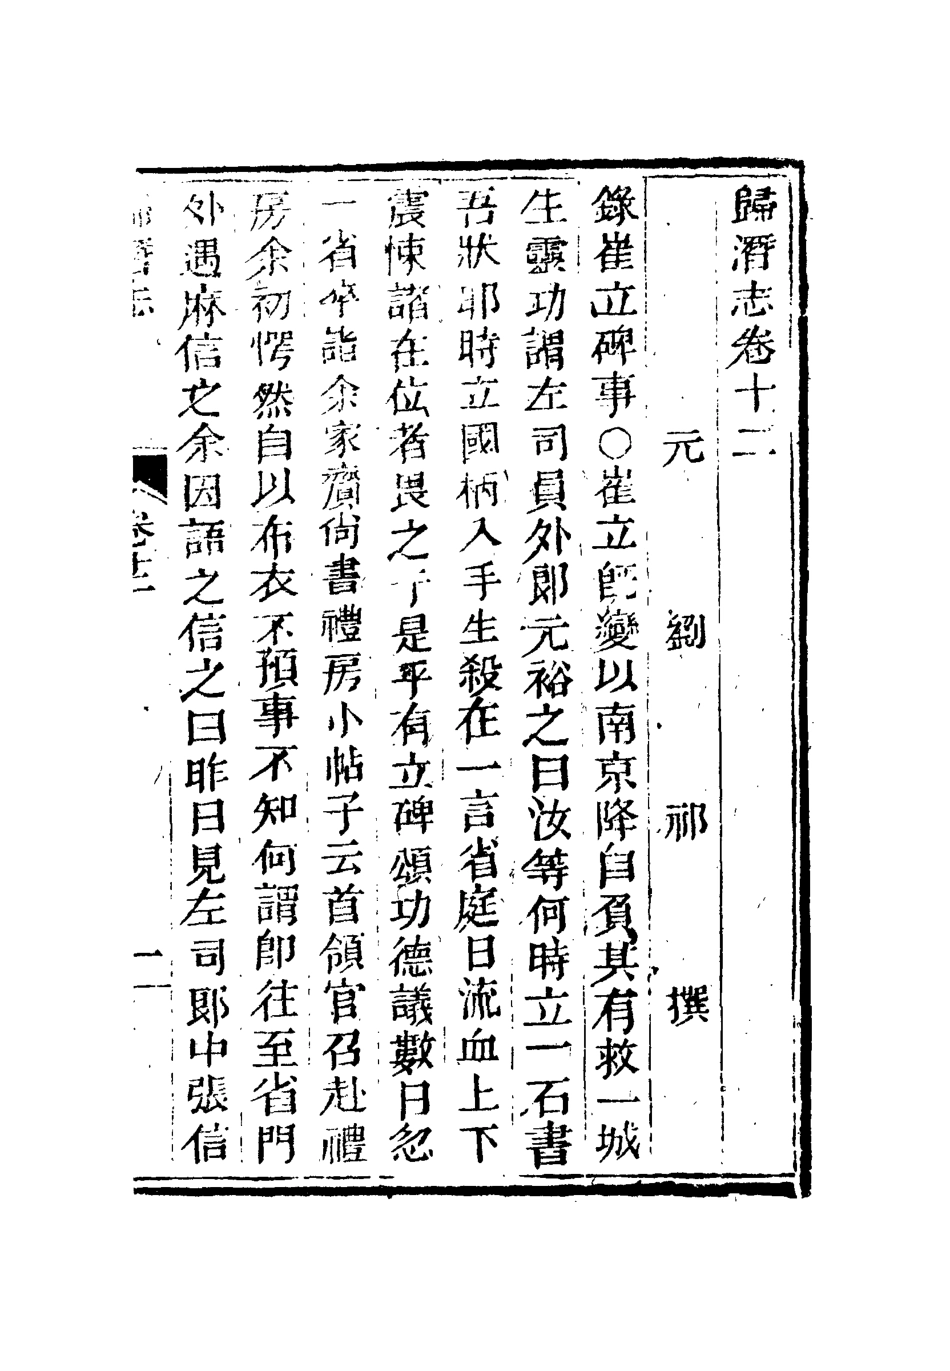 歸潛志卷十二
元　劉　祁　撰
錄崔立碑事○崔立既變以南京降自負其有救一城
生靈功謂左司員外郎元裕之曰汝等何時立一石書
吾狀耶時立國柄入手生殺在一言省庭日流血上下
震悚諸在位者畏之于是乎有立碑頌功德議數日忽
一省卒詣余家齎尚書禮房小帖子云首領官召赴禮
房余初愕然自以布衣不預事不知何謂即往至省門
外遇麻信之余因語之信之曰昨日見左司郎中張信
歸潛志　卷十二　一